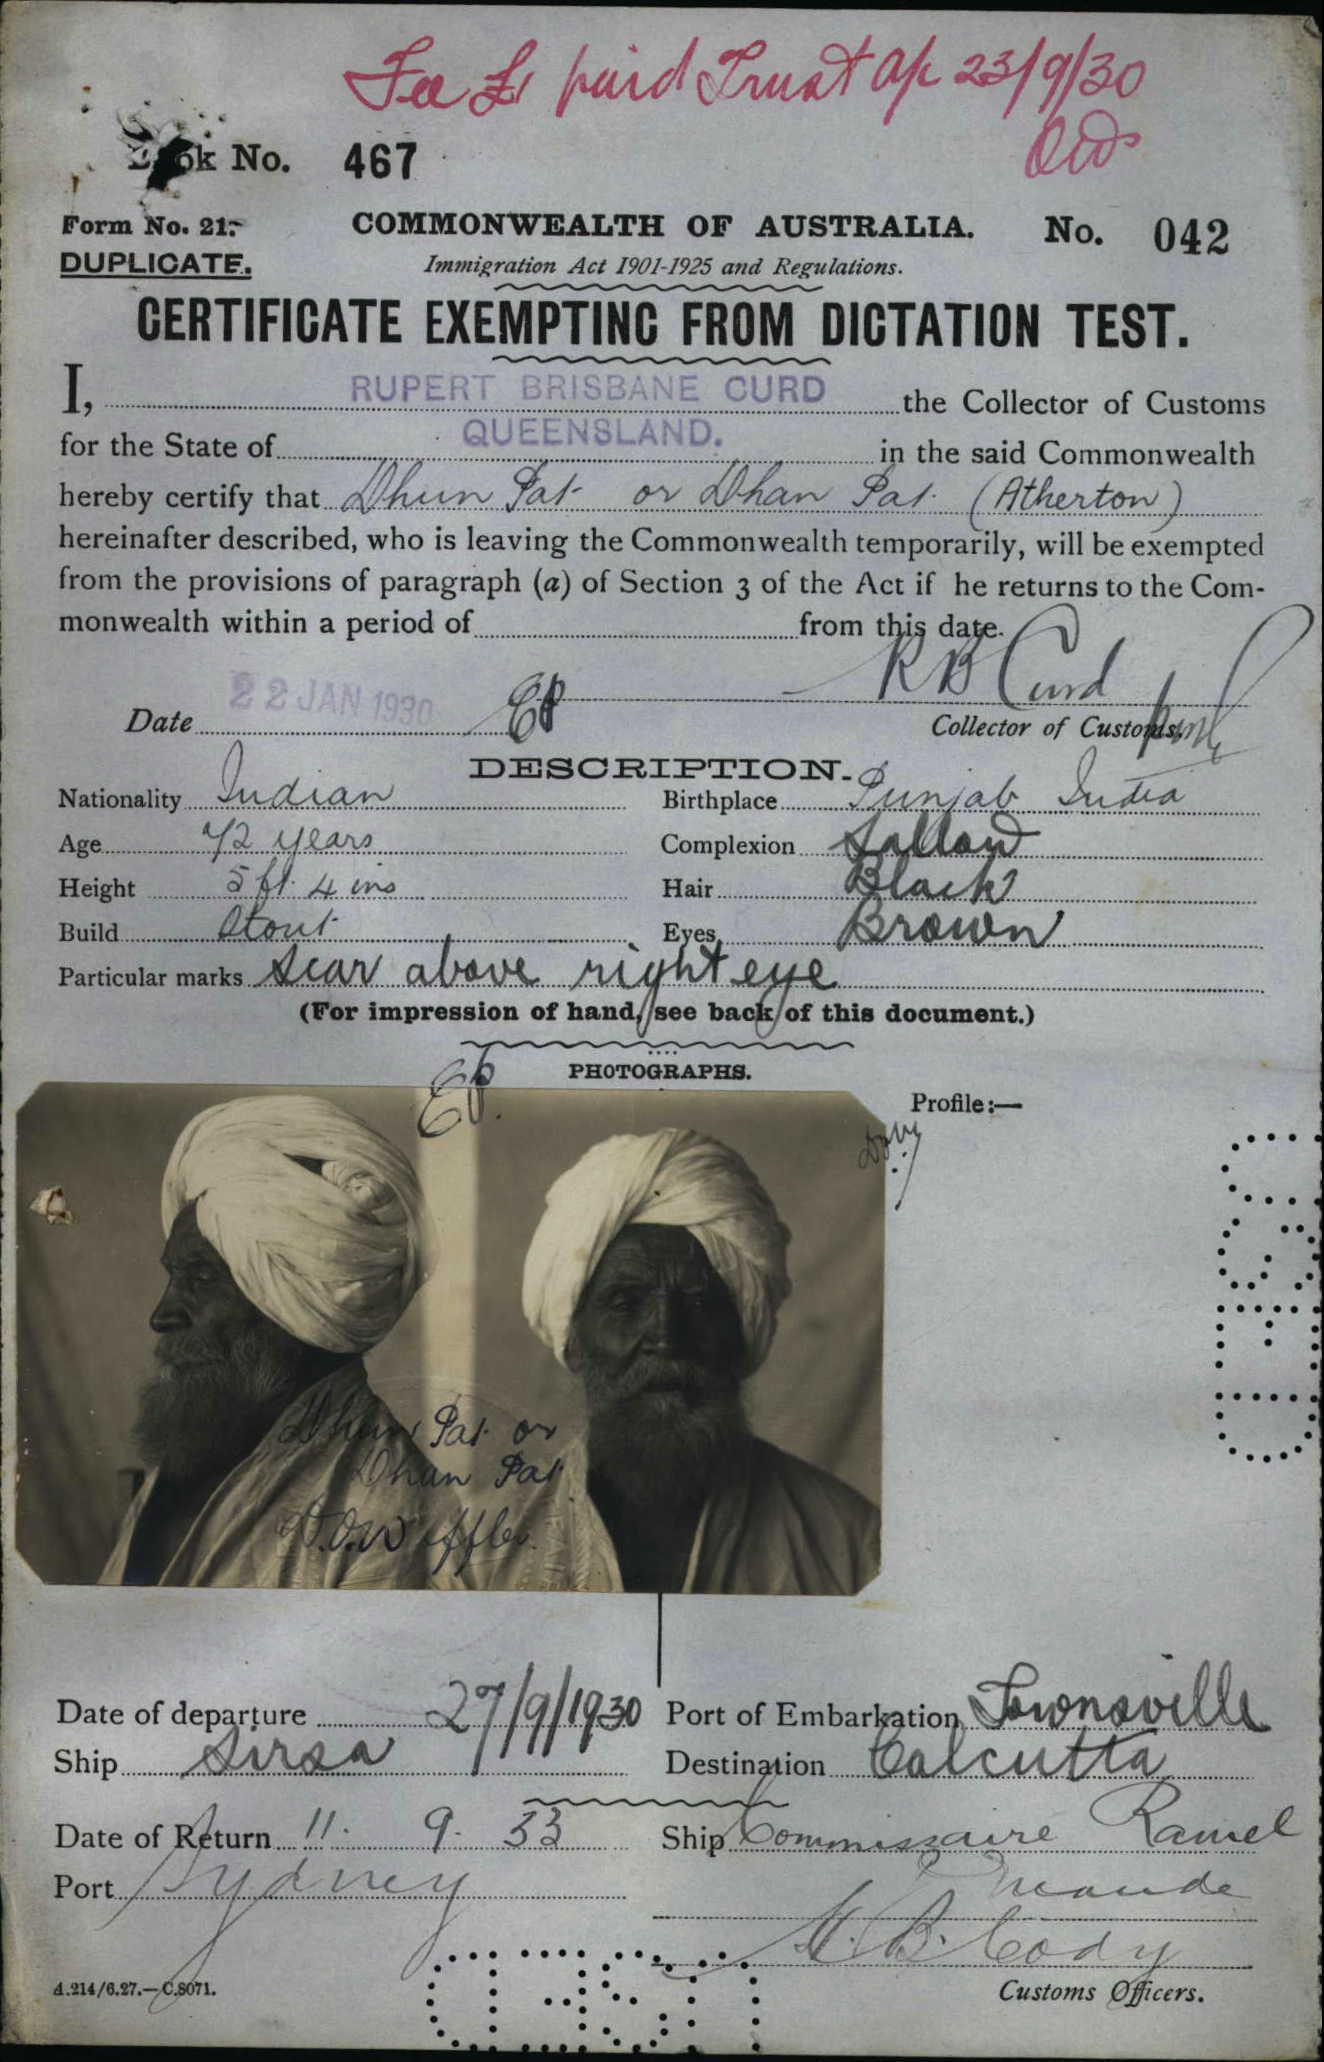 Fee £1 paid Trust a/c 23/9/30
Book No. 467
Form No. 21.
COMMONWEALTH OF AUSTRALIA.
No. 042
DUPLICATE.
Immigration Act 1901-1925 and Regulations.
CERTIFICATE EXEMPTING FROM DICTATION TEST.
I, RUPERT BRISBANE CURD the Collector of Customs
for the State of QUEENSLAND. in the said Commonwealth
hereby certify that Dhun Pat or Dhan Pat (Atherton)
hereinafter described, who is leaving the Commonwealth temporarily, will be exempted
from the provisions of paragraph (a) of Section 3 of the Act if he returns to the Com-
monwealth within a period of from this date.
R B Curd
Date 22 JAN 1930
Collector of Customs.
DESCRIPTION.
Nationality Indian
Birthplace Punjab India
Age 72 years
Complexion Sallow
Height 5 ft 4 ins
Hair Black
Build Stout
Eyes Brown
Particular marks Scar above right eye
(For impression of hand, see back of this document.)
PHOTOGRAPHS.
Profile:—
Dhun Pat or
Dhan Pat
Date of departure 27/9/1930
Port of Embarkation Townsville
Ship Sirsa
Destination Calcutta
Date of Return 11. 9. 33
Ship Commissaire Ramel
Port Sydney
Customs Officers.
A.214/6.27.—C.8071.